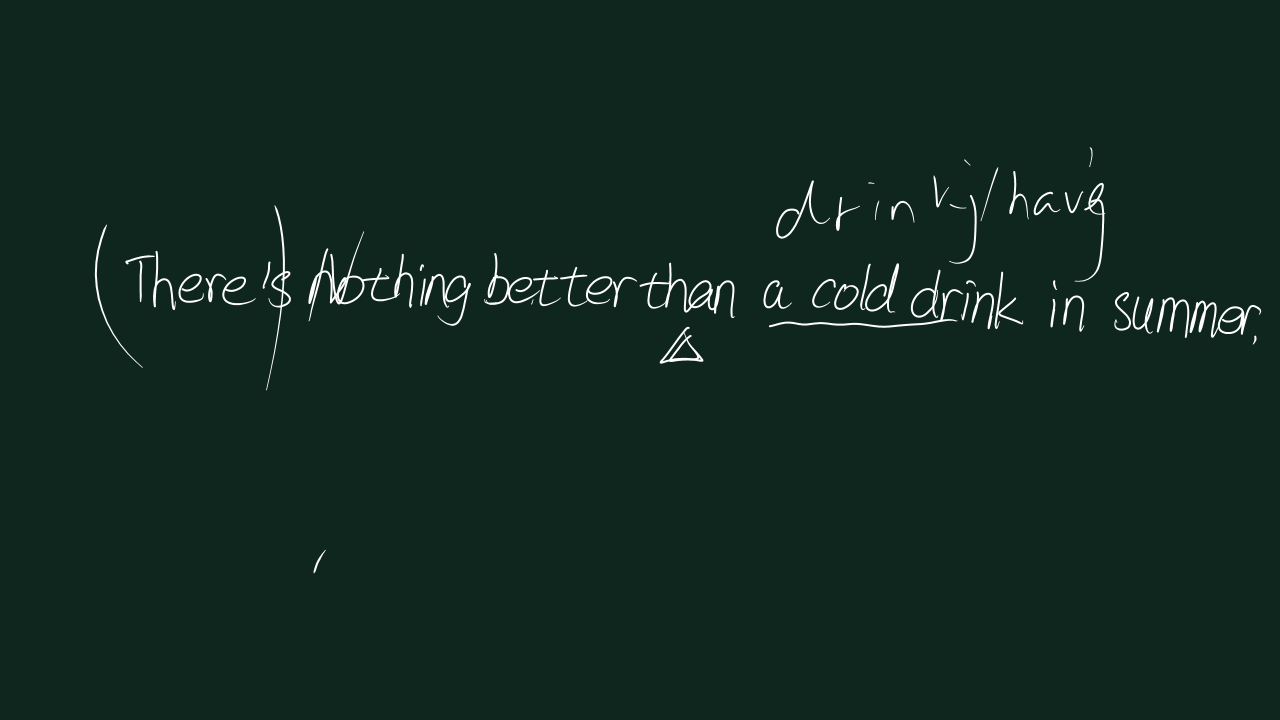 drinkj/havg
(There's) Nothing better than a cold drink in summer.